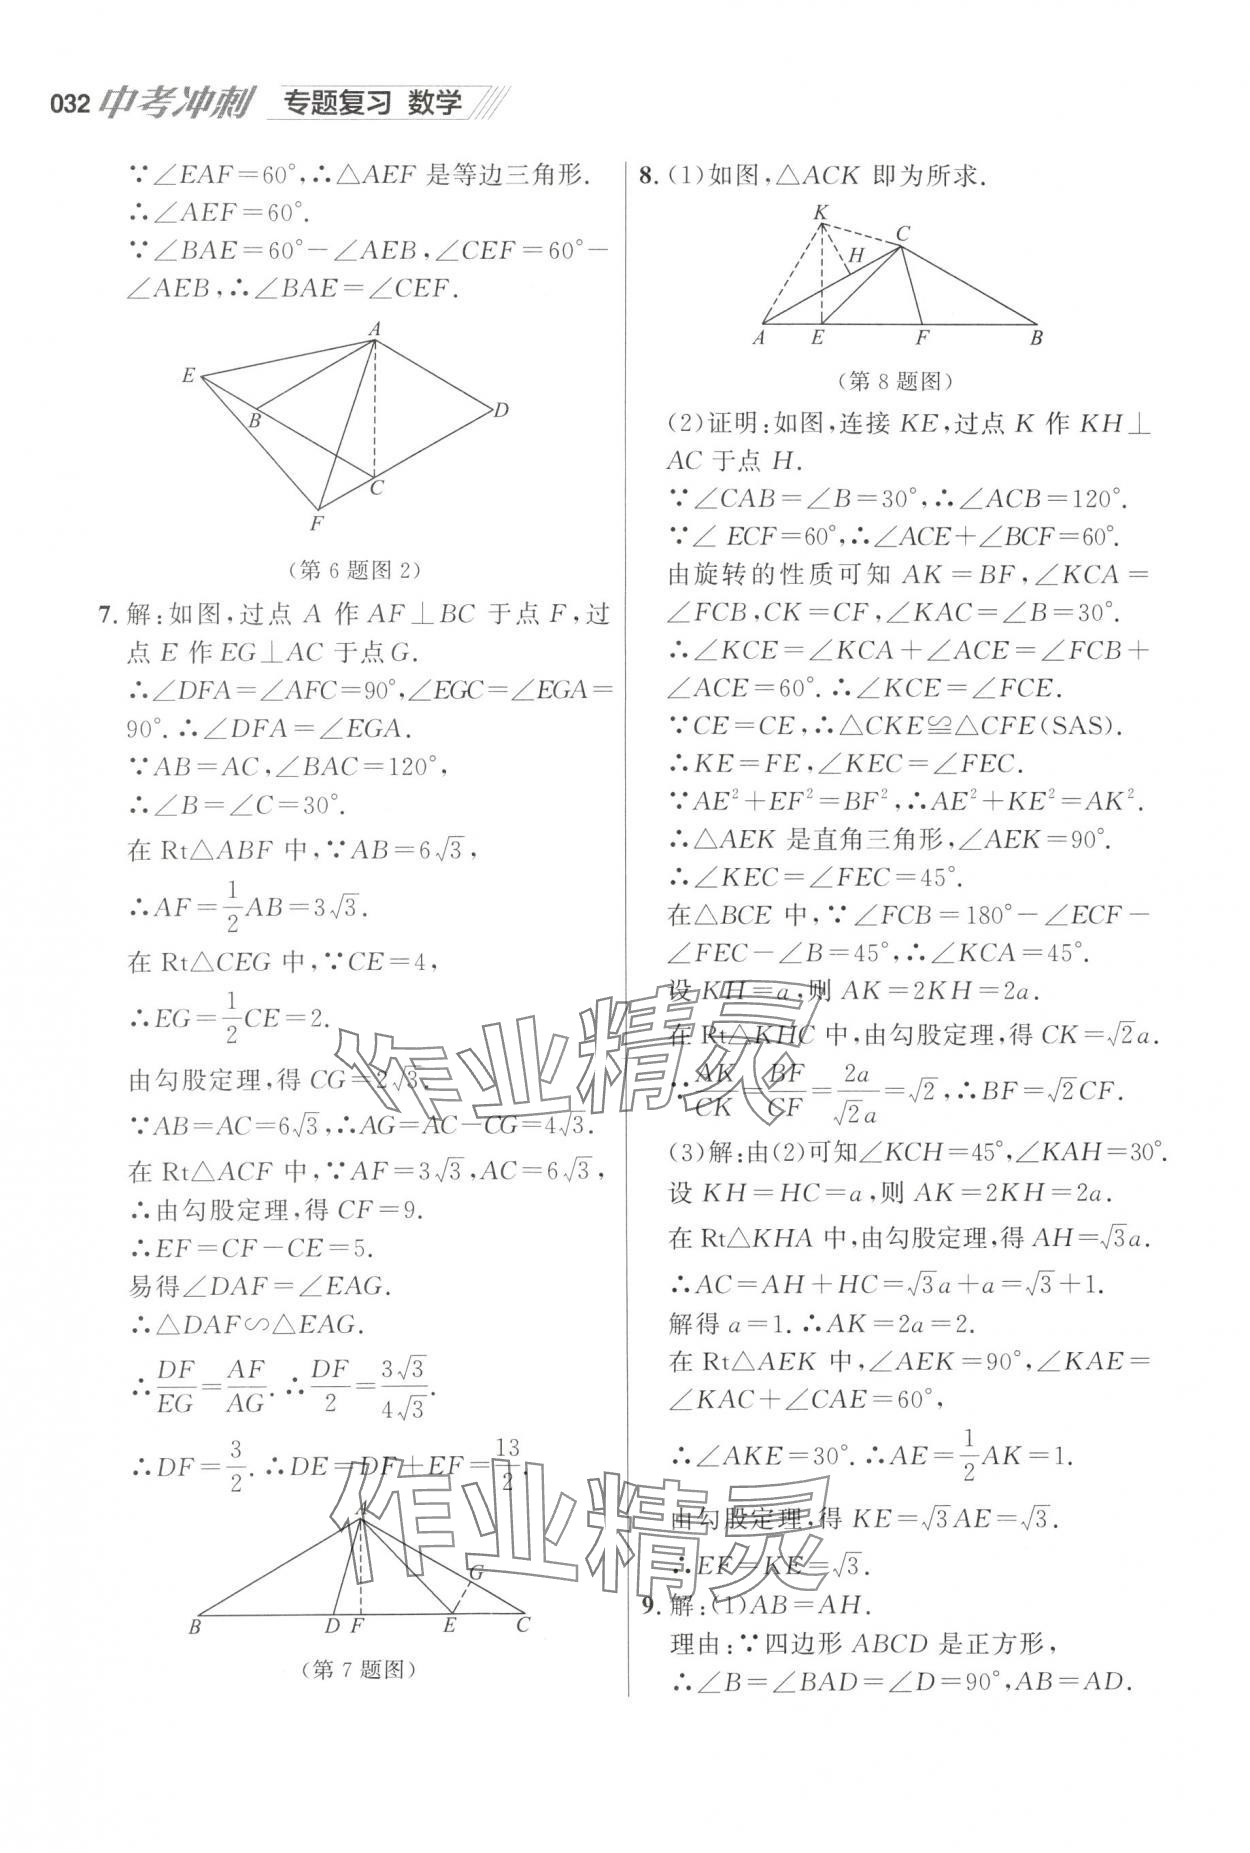 032 中考冲刺 专题复习 数学
∵∠EAF=60°,∴△AEF 是等边三角形.
∴∠AEF=60°.
∵∠BAE=60°-∠AEB,∠CEF=60°-
∠AEB,∴∠BAE=∠CEF.
A
E
B
D
C
F
(第 6 题图 2)
7. 解:如图,过点 A 作 AF⊥BC 于点 F,过
点 E 作 EG⊥AC 于点 G.
∴∠DFA=∠AFC=90°,∠EGC=∠EGA=
90°.∴∠DFA=∠EGA.
∵AB=AC,∠BAC=120°,
∴∠B=∠C=30°.
在 Rt△ABF 中,∵AB=6√3,
∴AF=1/2AB=3√3.
在 Rt△CEG 中,∵CE=4,
∴EG=1/2CE=2.
由勾股定理,得 CG=2√3.
∵AB=AC=6√3,∴AG=AC-CG=4√3.
在 Rt△ACF 中,∵AF=3√3,AC=6√3,
∴由勾股定理,得 CF=9.
∴EF=CF-CE=5.
易得∠DAF=∠EAG.
∴△DAF∽△EAG.
∴DF/EG=AF/AG.∴DF/2=3√3/4√3.
∴DF=3/2.∴DE=DF+EF=13/2.
A
G
B D F E C
(第 7 题图)
8. (1)如图,△ACK 即为所求.
K
C
H
A E F B
(第 8 题图)
(2)证明:如图,连接 KE,过点 K 作 KH⊥
AC 于点 H.
∵∠CAB=∠B=30°,∴∠ACB=120°.
∵∠ ECF=60°,∴∠ACE+∠BCF=60°.
由旋转的性质可知 AK=BF,∠KCA=
∠FCB,CK=CF,∠KAC=∠B=30°.
∴∠KCE=∠KCA+∠ACE=∠FCB+
∠ACE=60°.∴∠KCE=∠FCE.
∵CE=CE,∴△CKE≌△CFE(SAS).
∴KE=FE,∠KEC=∠FEC.
∵AE²+EF²=BF²,∴AE²+KE²=AK².
∴△AEK 是直角三角形,∠AEK=90°.
∴∠KEC=∠FEC=45°.
在△BCE 中,∵∠FCB=180°-∠ECF-
∠FEC-∠B=45°,∴∠KCA=45°.
设 KH=a,则 AK=2KH=2a.
在 Rt△KHC 中,由勾股定理,得 CK=√2a.
∵AK/CK=BF/CF=2a/√2a=√2,∴BF=√2CF.
(3)解:由(2)可知∠KCH=45°,∠KAH=30°.
设 KH=HC=a,则 AK=2KH=2a.
在 Rt△KHA 中,由勾股定理,得 AH=√3a.
∴AC=AH+HC=√3a+a=√3+1.
解得 a=1.∴AK=2a=2.
在 Rt△AEK 中,∠AEK=90°,∠KAE=
∠KAC+∠CAE=60°,
∴∠AKE=30°.∴AE=1/2AK=1.
由勾股定理,得 KE=√3AE=√3.
∴EF=KE=√3.
9. 解:(1)AB=AH.
理由:∵四边形 ABCD 是正方形,
∴∠B=∠BAD=∠D=90°,AB=AD.
作业精灵
作业精灵